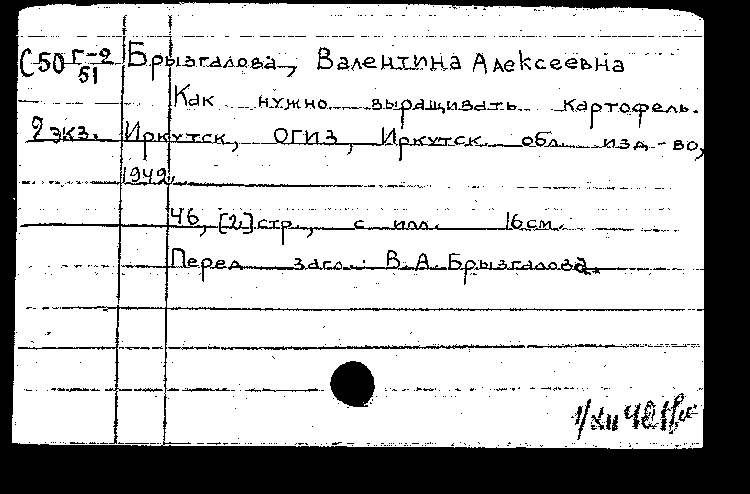 С50 Г-2/51 Брызгалова, Валентина Алексеевна
Как нужно выращивать картофель.
2 экз. Иркутск, ОГИЗ, Иркутск. обл. изд-во,
1949.
46, [2] стр., с илл. 16 см.
Перед загл.: В.А. Брызгалова.